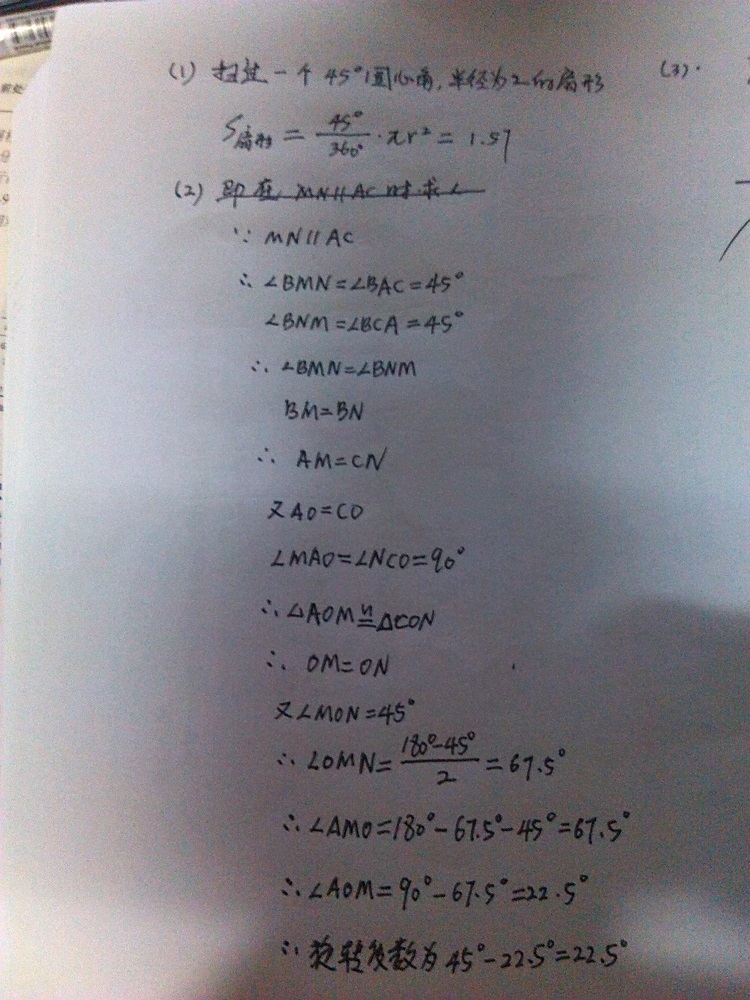 (1) 扫过一个45°圆心角,半径为2的扇形
(3).
S扇形 = 45°/360° · πr² = 1.57
(2) 即在 MN∥AC 时.求∠
∵ MN∥AC
∴ ∠BMN=∠BAC=45°
∠BNM=∠BCA=45°
∴ ∠BMN=∠BNM
BM=BN
∴ AM=CN
又AO=CO
∠MAO=∠NCO=90°
∴ △AOM≌△CON
∴ OM=ON
又∠MON=45°
∴ ∠OMN= 180°-45°/2 = 67.5°
∴ ∠AMO=180°-67.5°-45°=67.5°
∴ ∠AOM=90°-67.5°=22.5°
∴ 旋转度数为 45°-22.5°=22.5°